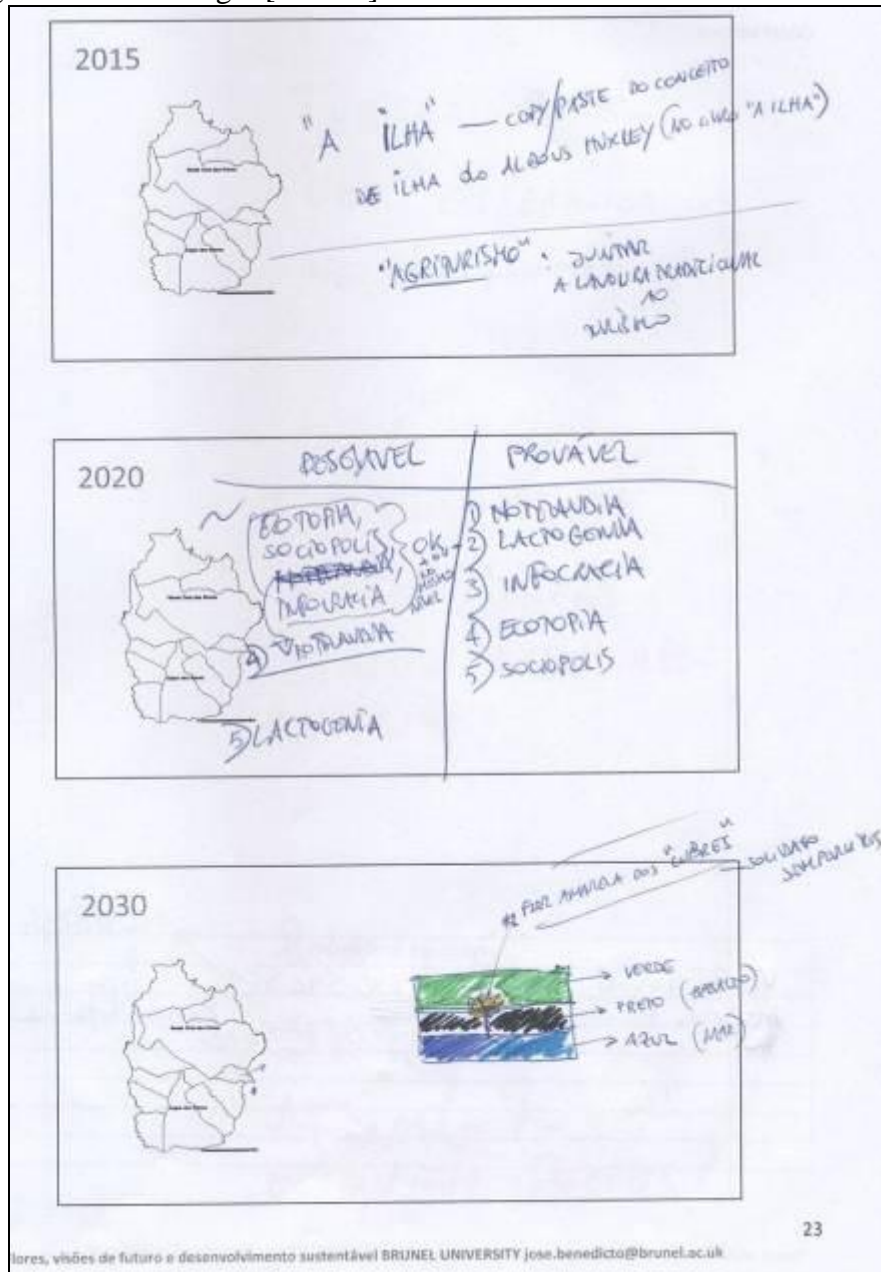 2015
"A ILHA" — COPY/PASTE DO CONCEITO
DE ILHA do ALDOUS HUXLEY (NO LIVRO "A ILHA")
"AGRITURISMO" : JUNTAR
A LAVOURA TRADICIONAL
AO
TURISMO
2020
DESEJÁVEL
PROVÁVEL
ECOTOPIA,
SOCIOPOLIS
INFOCRACIA
OK
NO
4)
5) LACTOGONIA
1) HOTELANDIA
2) LACTOGONIA
3) INFOCRACIA
4) ECOTOPIA
5) SOCIOPOLIS
2030
FLOR AMARELA DOS "CUBRES"
VERDE
PRETO
AZUL (MAR)
23
lores, visões de futuro e desenvolvimento sustentável BRUNEL UNIVERSITY jose.benedicto@brunel.ac.uk